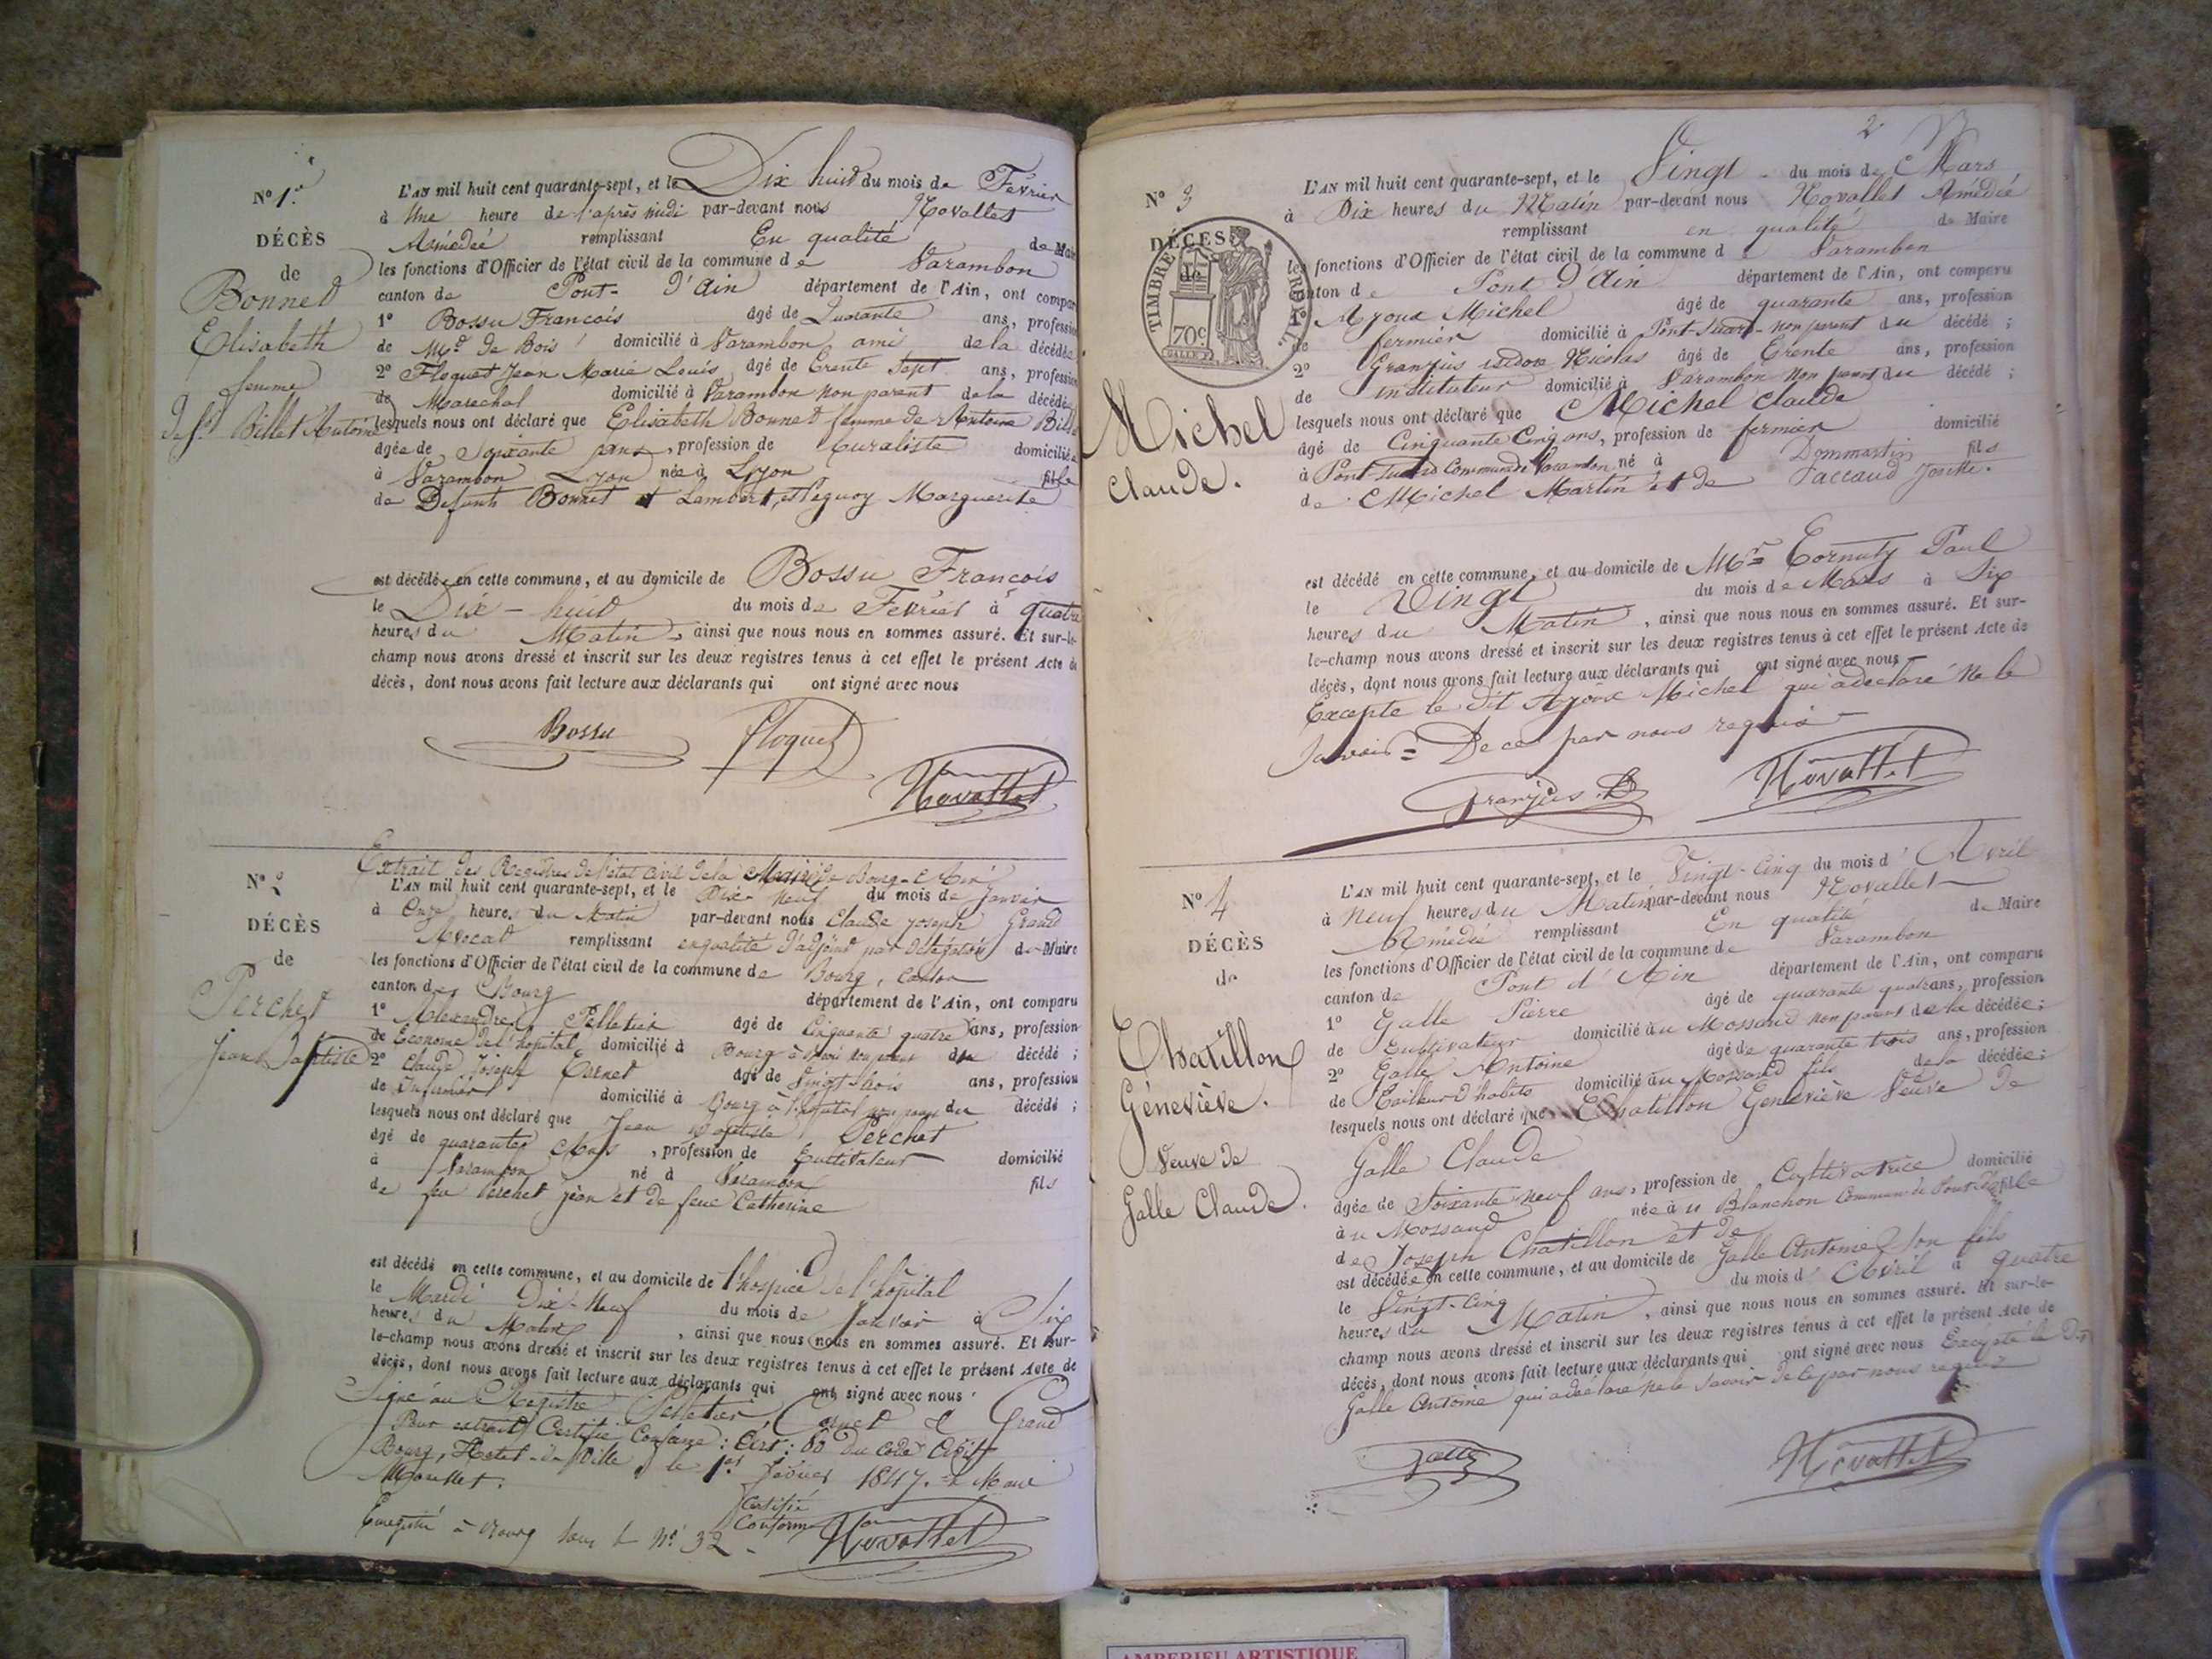 N° 1.er
DÉCÈS
de
Bonnet
Elisabeth
femme
Billet Antoine
L'AN mil huit cent quarante-sept, et le Dix huit du mois de Février
à Une heure de l'après midi par-devant nous Hovallet
Amédée remplissant En qualité de Maire
les fonctions d'Officier de l'état civil de la commune de Varambon
canton de Pont-d'Ain département de l'Ain, ont comparu
1° Bossu François âgé de Quarante ans, profession
de Md de Bois domicilié à Varambon ami de la décédée
2° Floquet Jean Marie Louis âgé de Trente Sept ans, profession
de Marechal domicilié à Varambon non parent de la décédée
lesquels nous ont déclaré que Elisabeth Bonnet femme de Antoine Billet
âgée de Soixante ans, profession de domiciliée
à Varambon née à Lyon fille
de Defunts Bonnet Lambert, et Marguerite
est décédée en cette commune, et au domicile de Bossu François
le Dix-huit du mois de Février à quatre
heures du Matin, ainsi que nous nous en sommes assuré. Et sur-le-
champ nous avons dressé et inscrit sur les deux registres tenus à cet effet le présent Acte de
décès, dont nous avons fait lecture aux déclarants qui ont signé avec nous
Bossu Floquet
Hovallet
Extrait des Registres de l'état civil de la Mairie de Bourg
N° 2
DÉCÈS
de
Perchet
Jean Baptiste
L'AN mil huit cent quarante-sept, et le Dix-Neuf du mois de Janvier
à Onze heures du Matin par-devant nous Claude Joseph Grand
Avocat remplissant en qualité d'adjoint par délégation de Maire
les fonctions d'Officier de l'état civil de la commune de Bourg, canton
canton de Bourg département de l'Ain, ont comparu
1° Alexandre Pelletier âgé de Cinquante quatre ans, profession
de Econome de l'hopital domicilié à Bourg non parent du décédé ;
2° Claude Joseph Cornet âgé de Vingt trois ans, profession
de Infirmier domicilié à Bourg à l'hopital non parent du décédé ;
lesquels nous ont déclaré que Jean Baptiste Perchet
âgé de quarante ans, profession de Cultivateur domicilié
à Varambon né à Varambon fils
de feu Perchet Jean et de feue Catherine
est décédé en cette commune, et au domicile de l'hospice de l'hôpital
le Mardi Dix-Neuf du mois de Janvier à Six
heures du Matin, ainsi que nous nous en sommes assuré. Et sur-
le-champ nous avons dressé et inscrit sur les deux registres tenus à cet effet le présent Acte de
décès, dont nous avons fait lecture aux déclarants qui ont signé avec nous
Signé au Registre Pelletier, Cornet & Grand
Pour extrait Certifié Conforme : Art : 80 du Code Civil
Bourg, Hotel-de-Ville, le 1er Février 1847. le Maire
Certifié
Enregistré à Bourg sous le N° 32 Conforme Hovallet
2
N° 3
DÉCÈS
de
TIMBRE ROYAL
70c
Michel
Claude.
L'AN mil huit cent quarante-sept, et le Vingt du mois de Mars
à Dix heures du Matin par-devant nous Hovallet Amédée
remplissant en qualité de Maire
les fonctions d'Officier de l'état civil de la commune de Varambon
canton de Pont D'Ain département de l'Ain, ont comparu
Ajoux Michel âgé de quarante ans, profession
de fermier domicilié à Pont-Suard non parent du décédé ;
2° Granjus isidore Nicolas âgé de Trente ans, profession
de instituteur domicilié à Varambon non parent du décédé ;
lesquels nous ont déclaré que Michel Claude
âgé de Cinquante Cinq ans, profession de fermier domicilié
à Pont-Suard Commune de Varambon né à Dommartin fils
de Michel Martin et de Paccaud Josette.
est décédé en cette commune, et au domicile de Mr Tornuty Paul
le Vingt du mois de Mars à Six
heures du Matin, ainsi que nous nous en sommes assuré. Et sur-
le-champ nous avons dressé et inscrit sur les deux registres tenus à cet effet le présent Acte de
décès, dont nous avons fait lecture aux déclarants qui ont signé avec nous
Excepte le dit Ajoux Michel qui a declaré ne le
Savoir = De ce par nous requis
Granjus Hovallet
N° 4
DÉCÈS
de
Chatillon
Géneviève.
Veuve de
Galle Claude.
L'AN mil huit cent quarante-sept, et le Vingt-Cinq du mois d'Avril
à Neuf heures du Matin par-devant nous Hovallet
Amédée remplissant En qualité de Maire
les fonctions d'Officier de l'état civil de la commune de Varambon
canton de Pont d'Ain département de l'Ain, ont comparu
1° Galle Pierre âgé de quarante quatre ans, profession
de Cultivateur domicilié au Mossard non parent de la décédée ;
2° Galle Antoine âgé de quarante trois ans, profession
de Tailleur d'habits domicilié au Mossard fils de la décédée ;
lesquels nous ont déclaré que Chatillon Geneviève Veuve de
Galle Claude
âgée de Soixante neuf ans, profession de Cultivatrice domicilié
au Mossard née au Blanchon Commune de Pont d'Ain fille
de Joseph Chatillon et de
est décédée en cette commune, et au domicile de Galle Antoine Son fils
le Vingt-Cinq du mois d'Avril à quatre
heures du Matin, ainsi que nous nous en sommes assuré. Et sur-le-
champ nous avons dressé et inscrit sur les deux registres tenus à cet effet le présent Acte de
décès, dont nous avons fait lecture aux déclarants qui ont signé avec nous Excepté le Dit
Galle Antoine qui a declaré ne le Savoir de ce par nous requis
Galle Hovallet
AMBERIEU ARTISTIQUE